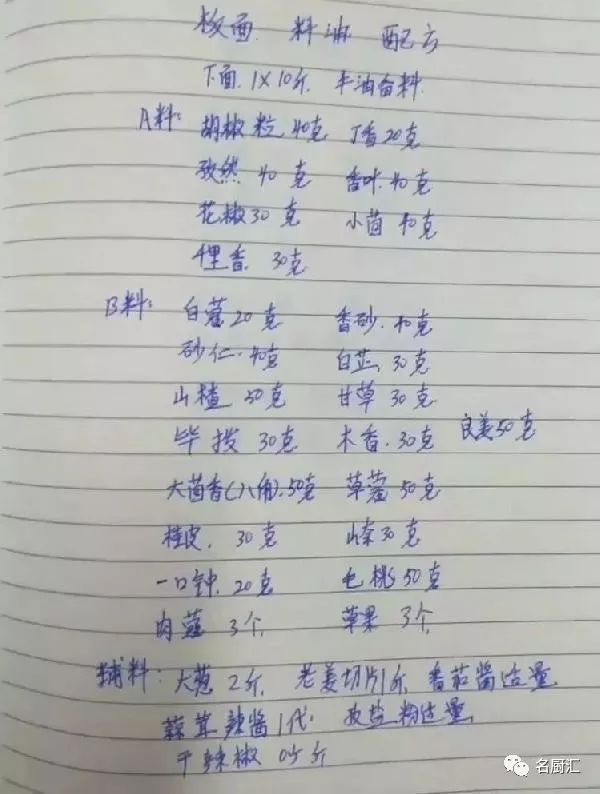 板面 料淋 配方
下面 1×10斤 牛油备料
A料: 胡椒粒 40克 丁香 20克
孜然 40克 香叶 40克
花椒 30克 小茴 40克
千里香 30克
B料: 白蔻 20克 香砂 40克
砂仁 40克 白芷 30克
山楂 50克 甘草 30克
毕拨 30克 木香 30克 良姜50克
大茴香(八角) 50克 草蔻 50克
桂皮 30克 山奈 30克
一口钟 20克 毛桃 50克
肉蔻 3个 草果 3个
辅料: 大葱 2斤 老姜切片1斤 番茄酱适量
蒜茸辣酱1代 皮盐粉适量
干辣椒 0.5斤
名厨汇